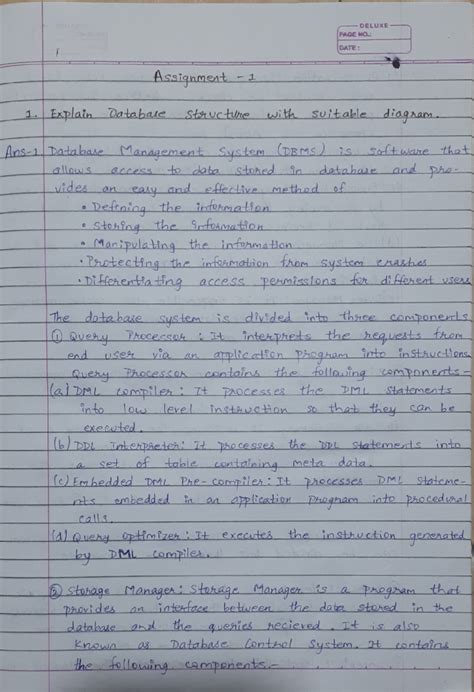 DELUXE
PAGE NO.:
DATE:
Assignment - 1
1. Explain Database structure with suitable diagram.
Ans-1 Database Management System (DBMS) is software that
allows access to data stored in database and pro-
vides an easy and effective method of
• Defining the information
• Storing the information
• Manipulating the information
• Protecting the information from system crashes
• Differentiating access permissions for different users
The database system is divided into three components
① Query Processor : It interprets the requests from
end user via an application program into instructions.
Query Processor contains the following components -
(a) DML Compiler : It processes the DML statements
into low level instruction so that they can be
executed.
(b) DDL Interpreter: It processes the DDL statements into
a set of table containing meta data.
(c) Embedded DML Pre-compiler : It processes DML stateme-
nts embedded in an application program into procedural
calls.
(d) Query Optimizer : It executes the instruction generated
by DML compiler.
② Storage Manager : Storage Manager is a program that
provides an interface between the data stored in the
database and the queries recieved. It is also
known as Database Control System. It contains
the following components -